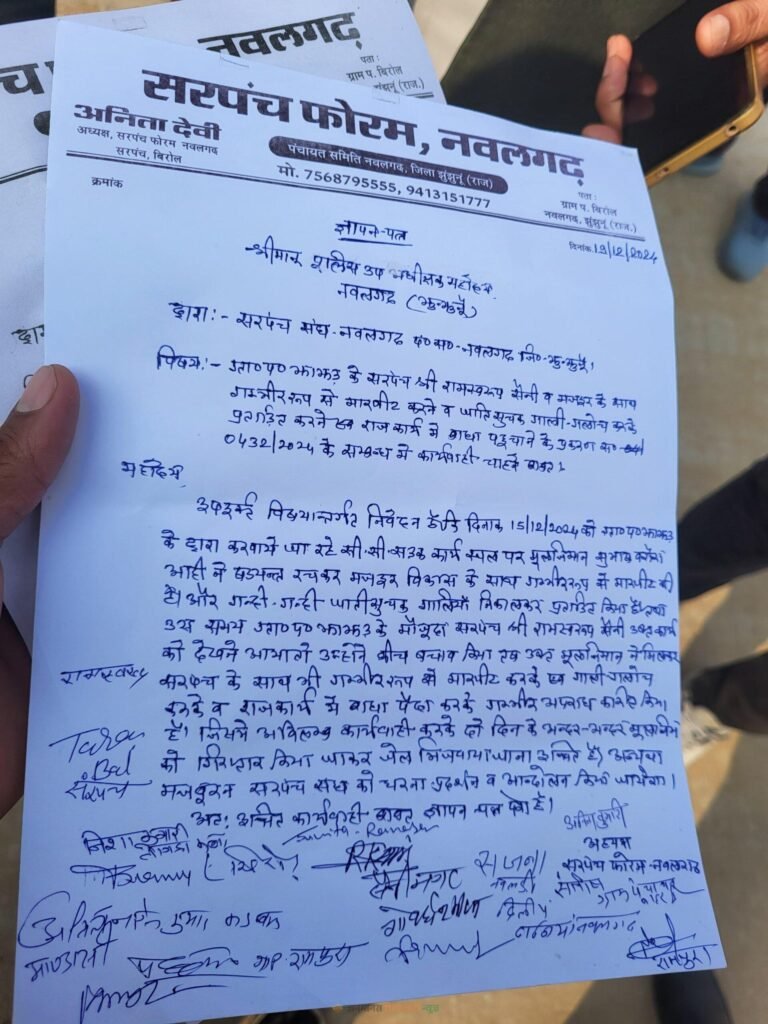 नवलगढ़
पता :
ग्राम प. बिरोल
झुंझुनूं (राज.)
सरपंच फोरम, नवलगढ़
अनिता देवी
अध्यक्ष, सरपंच फोरम नवलगढ़
सरपंच, बिरोल
पंचायत समिति नवलगढ़, जिला झुंझुनूं (राज)
मो. 7568795555, 9413151777
पता :
ग्राम प. बिरोल
नवलगढ़, झुंझुनूं (राज.)
क्रमांक
दिनांक 19/12/2024
ज्ञापन-पत्र
श्रीमान पुलिस उप अधीक्षक महोदय
नवलगढ (झुन्झुनूँ)
द्वारा:- सरपंच संघ-नवलगढ प०स०-नवलगढ जि०-झुन्झुनूँ।
विषय:- ग्रा०प०झाझड के सरपंच श्री रामस्वरूप सैनी व मजदूर के साथ
गम्भीर रूप से मारपीट करने व जाति सुचक गाली-गलोच करके
प्रताडित करने एव राजकार्य मे बाधा पहुचाने के प्रकरण क०
0432/2024 के सम्बन्ध मे कार्यवाही चाहने बाबत।
महोदय
उपरोक्त विषयान्तर्गत निवेदन है कि दिनांक 15/12/2024 को ग्रा०प०झाझड
के द्वारा करवाये जा रहे सी.सी.सडक कार्य स्थल पर मुलजिमान सुभाष
आदी ने षडयन्त्र रचकर मजदूर विकास के साथ गम्भीर रूप से मारपीट की
है। और गन्दी-गन्दी जातीसुचक गालियाँ निकालकर प्रताडित किया है। तथा
उस समय ग्रा०प०झाझड के मौजुदा सरपंच श्री रामस्वरूप सैनी उक्त कार्य
को देखने आये तो उन्होने बीच बचाव किया एव उक्त मुलजिमान ने मिलकर
सरपंच के साथ भी गम्भीर रूप से मारपीट करके एव गाली गलोच
करके व राजकार्य मे बाधा पैदा करके गम्भीर अपराध कारित किया
है। जिसमे अविलम्ब कार्यवाही करके दो दिन के अन्दर-अन्दर मुलजिमान
को गिरफ्तार किया जाकर जेल भिजवाया जाना उचित है। अन्यथा
मजबूरन सरपंच संघ को धरना प्रदर्शन व आन्दोलन किया जायेगा।
अत: उचित कार्यवाही बाबत ज्ञापन पत्र पेश है।
रामस्वरूप
सरपंच
अध्यक्ष
सरपंच फोरम-नवलगढ
सजना
दिलीप
रामपुरा